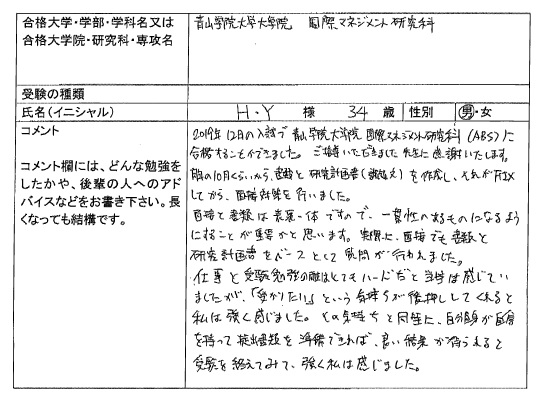 合格大学・学部・学科名又は
合格大学院・研究科・専攻名
青山学院大学大学院 国際マネジメント研究科
受験の種類
氏名（イニシャル）
H・Y 様 34 歳 性別 男・女
コメント
コメント欄には、どんな勉強を
したかや、後輩の人へのアド
バイスなどをお書き下さい。長
くなっても結構です。
2019年12月の入試で青山学院大学院国際マネジメント研究科（ABS）に
合格することができました。ご指導いただきました先生に感謝いたします。
10月くらいから、書類と研究計画書を作成し、それがFIX
してから、面接対策を行いました。
面接と書類は表裏一体ですので、一貫性のあるものになるよう
にすることが重要かと思います。実際に、面接でも書類と
研究計画書をベースとして質問が行われました。
仕事と受験勉強の両立はとてもハードだと当時は感じてい
ましたが、「受かりたい」という気持ちが後押ししてくれると
私は強く感じました。その気持ちと同時に、自分自身が自信
を持って提出書類を準備できれば、良い結果が得られると
受験を終えてみて、強く私は感じました。